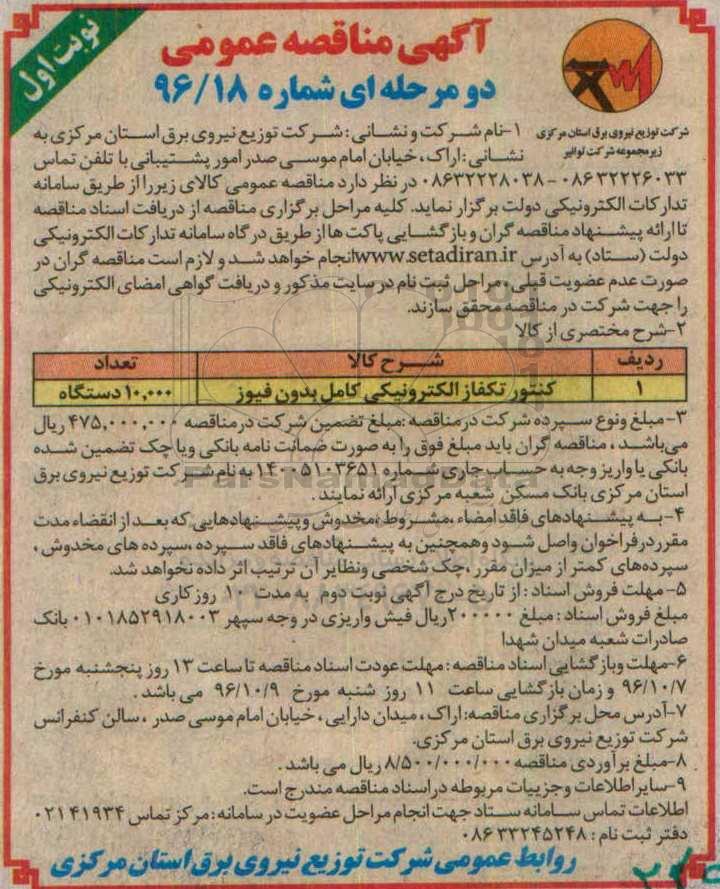 نوبت اول
آگهی مناقصه عمومی
دو مرحله ای شماره ۹۶/۱۸
شرکت توزیع نیروی برق استان مرکزی
زیرمجموعه شرکت توانیر
۱-نام شرکت و نشانی: شرکت توزیع نیروی برق استان مرکزی به
نشانی: اراک، خیابان امام موسی صدر امور پشتیبانی با تلفن تماس
۰۸۶۳۲۲۲۶۰۳۳-۰۸۶۳۲۲۲۸۰۳۸ در نظر دارد مناقصه عمومی کالای زیر را از طریق سامانه
تدارکات الکترونیکی دولت برگزار نماید. کلیه مراحل برگزاری مناقصه از دریافت اسناد مناقصه
تا ارائه پیشنهاد مناقصه گران و بازگشایی پاکت ها از طریق درگاه سامانه تدارکات الکترونیکی
دولت (ستاد) به آدرس www.setadiran.ir انجام خواهد شد و لازم است مناقصه گران در
صورت عدم عضویت قبلی، مراحل ثبت نام در سایت مذکور و دریافت گواهی امضای الکترونیکی
را جهت شرکت در مناقصه محقق سازند.
۲-شرح مختصری از کالا
ردیف شرح کالا تعداد
۱ کنتور تکفاز الکترونیکی کامل بدون فیوز ۱۰,۰۰۰ دستگاه
۳-مبلغ ونوع سپرده شرکت در مناقصه :مبلغ تضمین شرکت درمناقصه ۴۷۵,۰۰۰,۰۰۰ ریال
می‌باشد ، مناقصه گران باید مبلغ فوق را به صورت ضمانت نامه بانکی ویا چک تضمین شده
بانکی یا واریز وجه به حساب جاری شماره ۱۴۰۰۵۱۰۳۶۵۱ به نام شرکت توزیع نیروی برق
استان مرکزی بانک مسکن شعبه مرکزی ارائه نمایند.
۴-به پیشنهادهای فاقد امضاء ،مشروط ،مخدوش و پیشنهادهایی که بعد از انقضاء مدت
مقرر درفراخوان واصل شود وهمچنین به پیشنهادهای فاقد سپرده ،سپرده های مخدوش ،
سپرده‌های کمتر از میزان مقرر ،چک شخصی ونظایر آن ترتیب اثر داده نخواهد شد.
۵- مهلت فروش اسناد : از تاریخ درج آگهی نوبت دوم به مدت ۱۰ روز کاری
مبلغ فروش اسناد : مبلغ ۲۰۰۰۰۰ ریال فیش واریزی در وجه سپهر ۰۱۰۱۸۵۲۹۱۸۰۰۳ بانک
صادرات شعبه میدان شهدا
۶-مهلت وبازگشایی اسناد مناقصه : مهلت عودت اسناد مناقصه تا ساعت ۱۳ روز پنجشنبه مورخ
۹۶/۱۰/۷ و زمان بازگشایی ساعت ۱۱ روز شنبه مورخ ۹۶/۱۰/۹ می باشد .
۷-آدرس محل برگزاری مناقصه: اراک ، میدان دارایی ، خیابان امام موسی صدر ، سالن کنفرانس
شرکت توزیع نیروی برق استان مرکزی.
۸-مبلغ برآوردی مناقصه ۸/۵۰۰/۰۰۰/۰۰۰ ریال می باشد .
۹-سایر اطلاعات وجزییات مربوطه دراسناد مناقصه مندرج است.
اطلاعات تماس سامانه ستاد جهت انجام مراحل عضویت در سامانه: مرکز تماس ۰۲۱۴۱۹۳۴
دفتر ثبت نام: ۰۸۶۳۳۲۴۵۲۴۸
روابط عمومی شرکت توزیع نیروی برق استان مرکزی